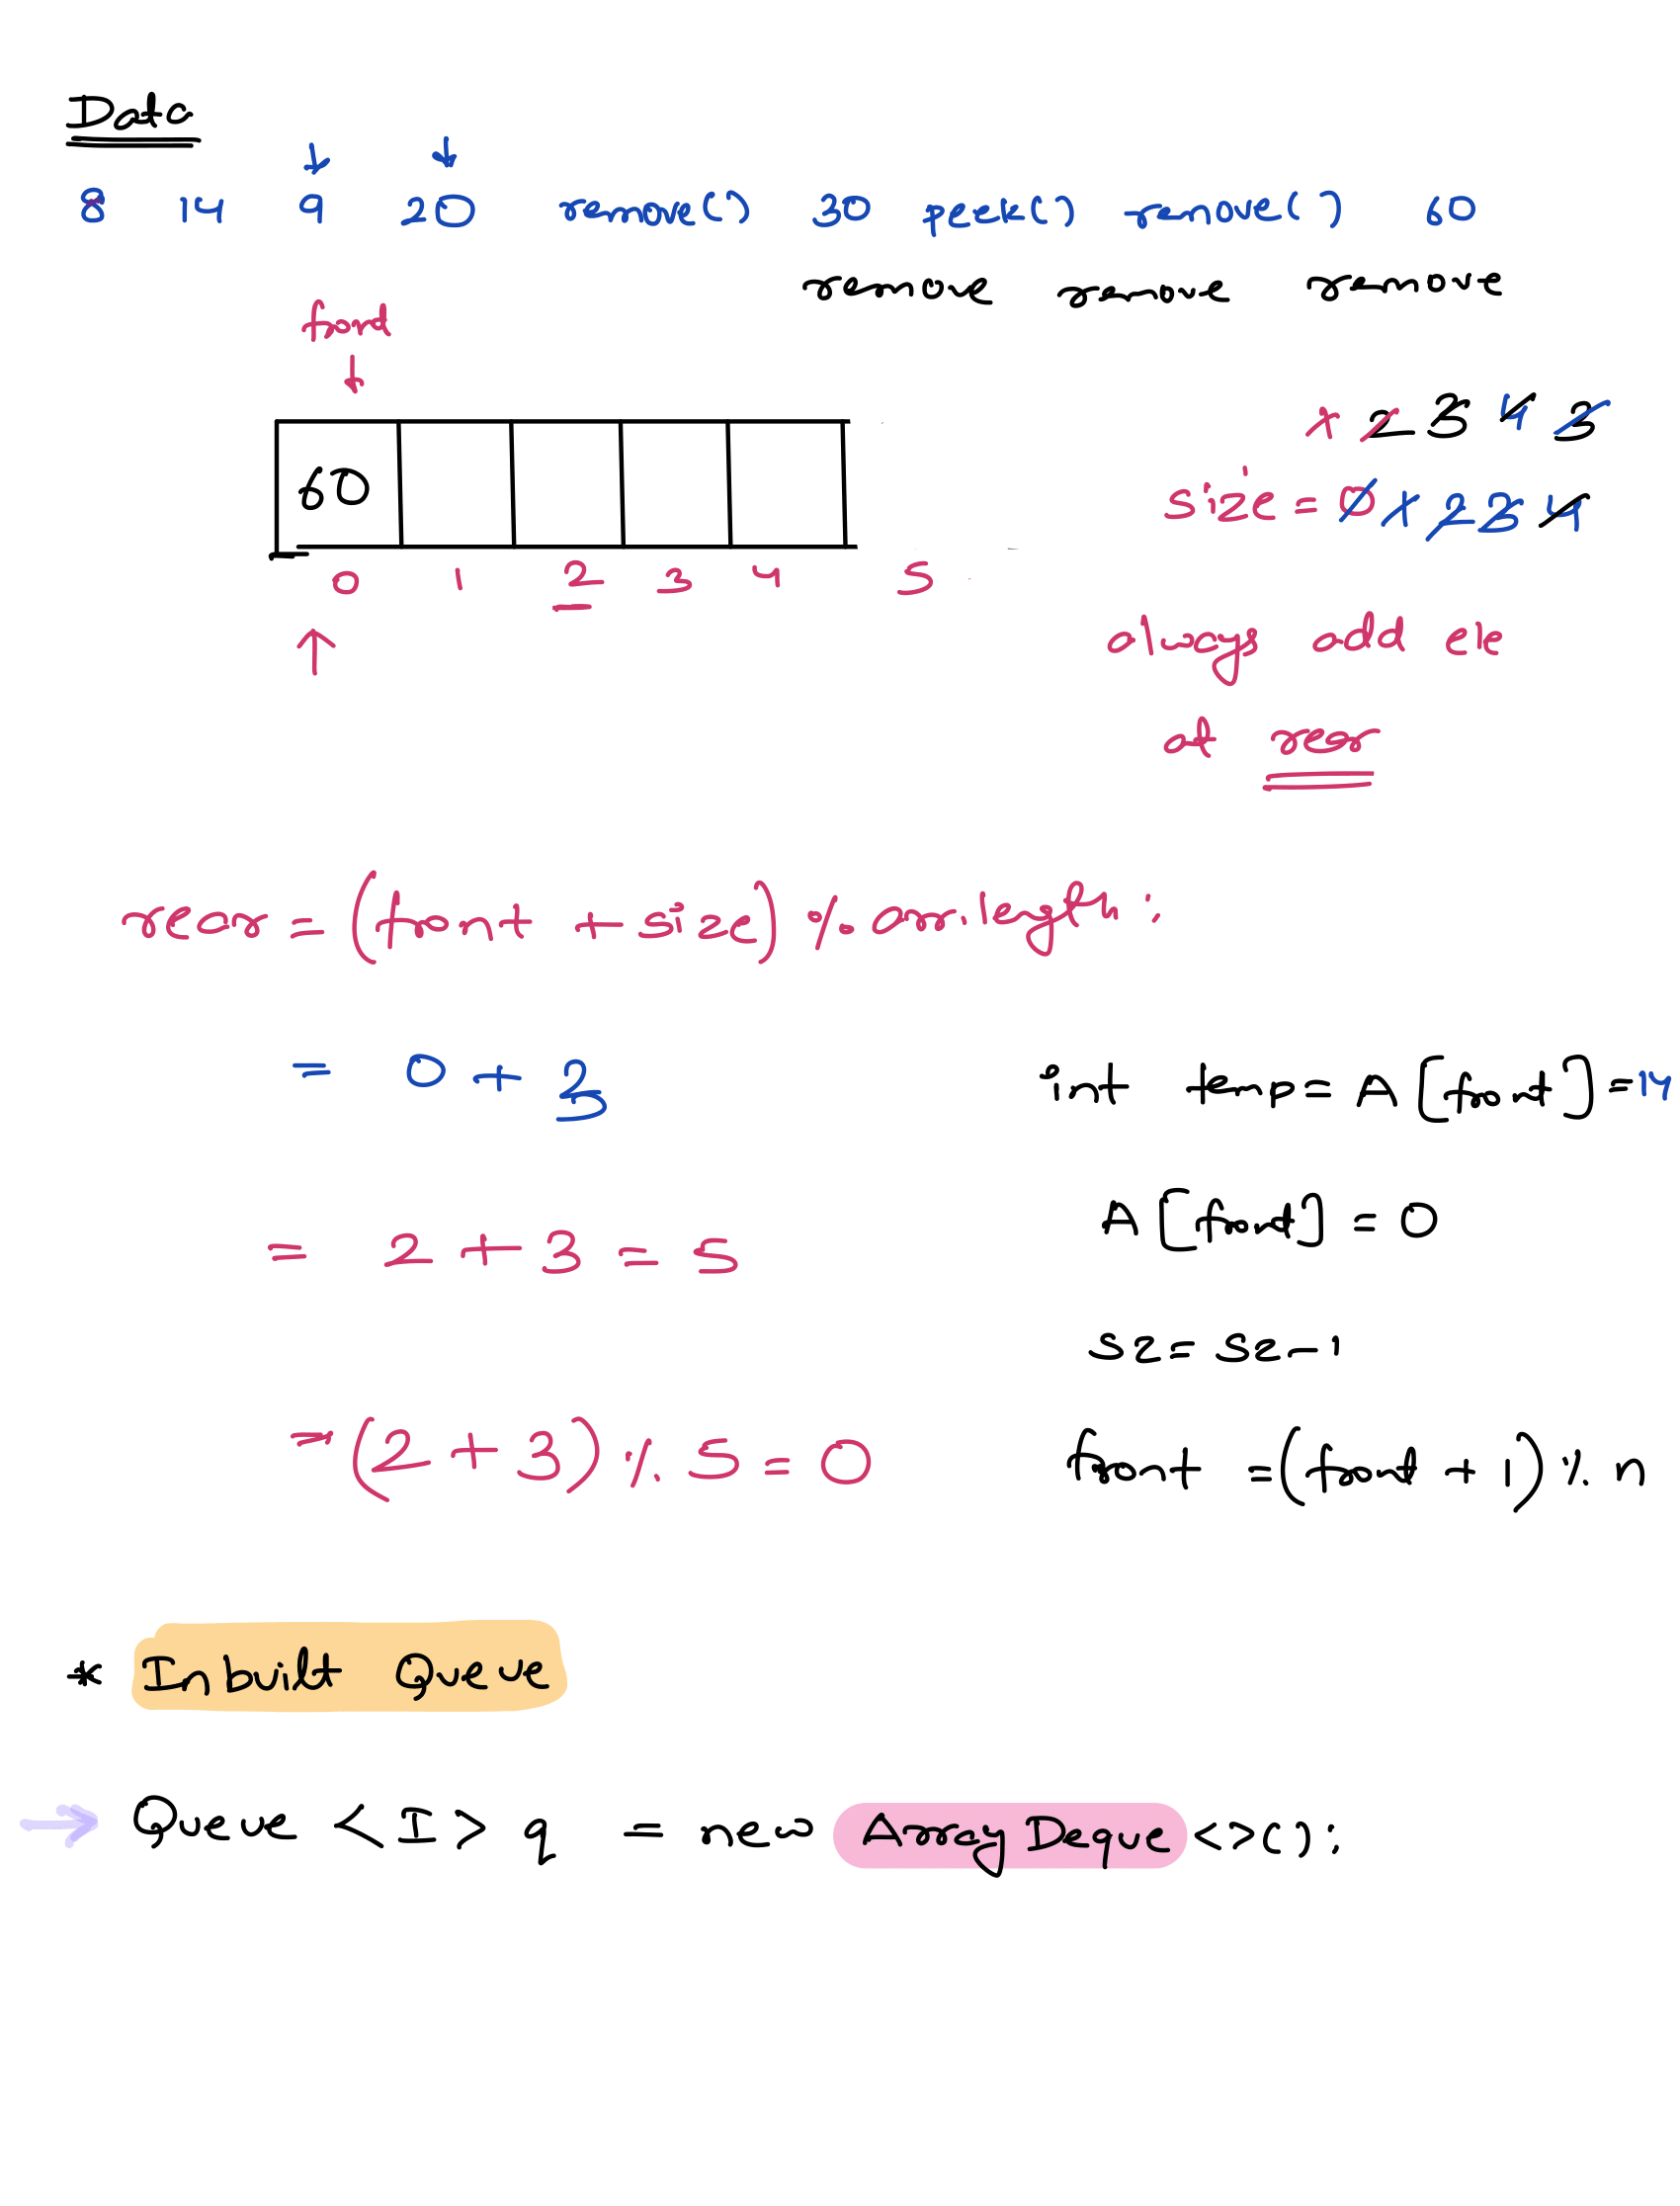 Data
8 14 9 20 remove() 30 peek() remove() 60
remove remove remove
front
1 2 3 4 3
60
size = 0 1 2 3 4
0 1 2 3 4 5
always add ele
at rear
rear = (front + size) % arr.length;
= 0 + 3
int temp = A[front] = 14
A[front] = 0
= 2 + 3 = 5
sz = sz - 1
= (2 + 3) % 5 = 0
front = (front + 1) % n
* Inbuilt Queue
→ Queue <I> q = new ArrayDeque<>();